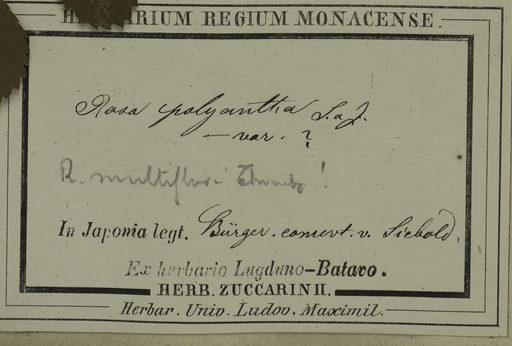 HERBARIUM REGIUM MONACENSE.
Rosa polyantha S. a Z.
— var. ?
R. multiflora Thunb !
In Japonia legt. Bürger. comert. v. Siebold.
Ex herbario Lugduno-Batavo.
HERB. ZUCCARINII.
Herbar. Univ. Ludov. Maximil.